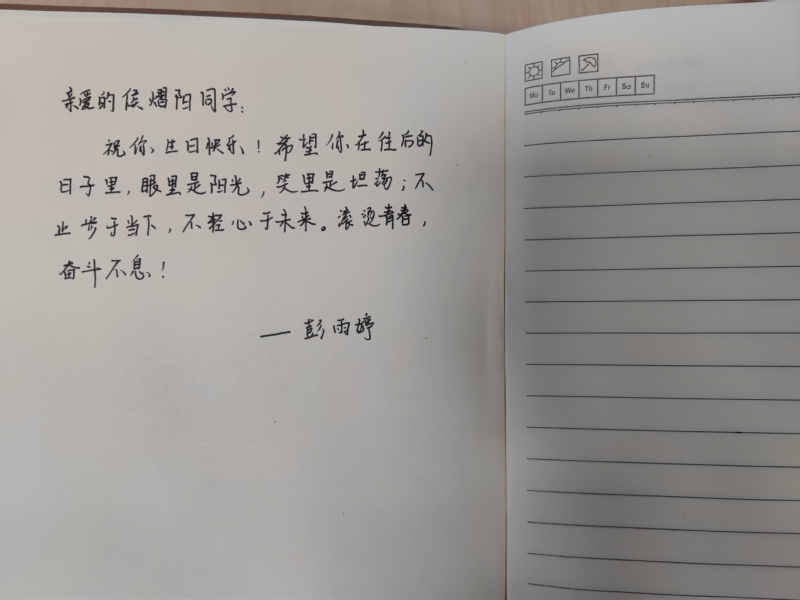 亲爱的侯熠阳同学:
祝你生日快乐!希望你在往后的
日子里,眼里是阳光,笑里是坦荡;不
止步于当下,不轻心于未来。滚烫青春,
奋斗不息!
— 彭雨婷
Mo Tu We Th Fr Sa Su